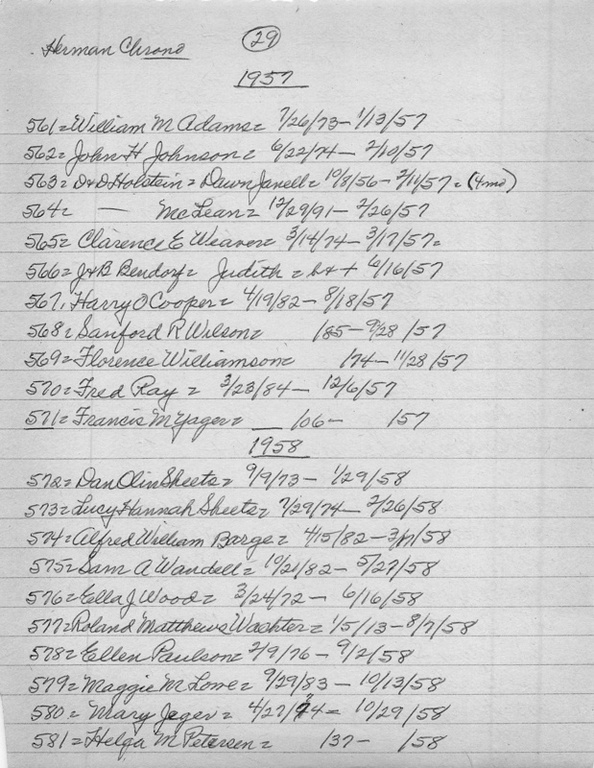 Herman Chrono (29)
1957
561= William M Adams= 7/26/73 - 1/13/57
562= John H Johnson= 6/22/74 - 2/10/57
563= D+D Holstein= Dawn Janell= 10/8/56 - 2/11/57= (4mo)
564= — McLean= 12/29/91 - 2/26/57
565= Clarence E Weaver= 3/14/74 - 3/17/57=
566= J+B Bendorf= Judith = b+ + 6/16/57
567, Harry O Cooper= 4/19/82 - 8/18/57
568= Sanford R Wilson= /85 - 9/28/57
569= Florence Williamson= /74 - 11/28/57
570= Fred Ray = 3/23/84 - 12/6/57
571= Francis M Yager= __ /06- /57
1958
572= Dan Olin Sheets= 9/9/73 - 1/29/58
573= Lucy Hannah Sheets= 7/29/74 - 2/26/58
574= Alfred William Barge= 4/15/82 - /58
575= Sam A Wandell= 10/21/82 - 5/27/58
576= Ella J Wood= 3/24/72 - 6/16/58
577= Roland Matthews Washter= 1/5/13 - 8/7/58
578= Ellen Paulson= 2/9/76 - 9/2/58
579= Maggie M Lowe= 9/29/83 - 10/13/58
580= Mary Jeger= 4/27/74= 10/29/58
581= Helga M Petersen= /37- /58